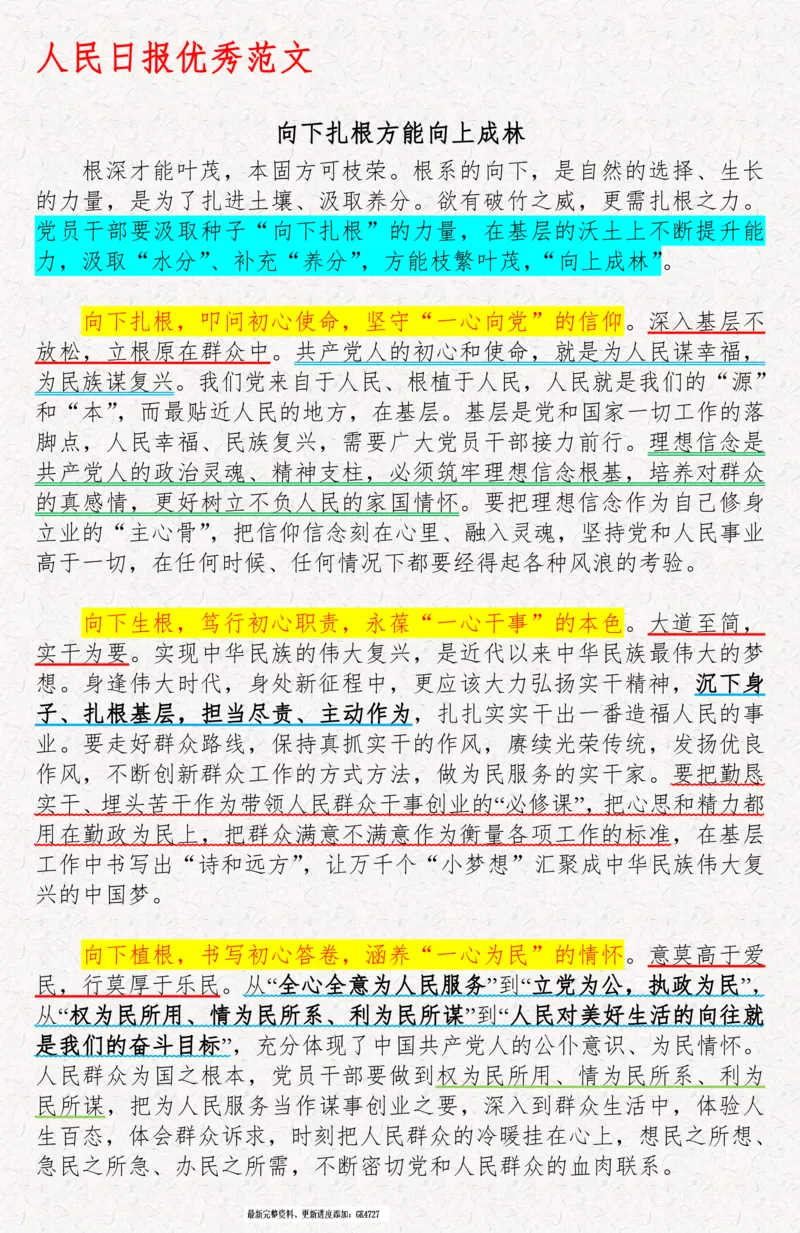 人民日报优秀范文
向下扎根方能向上成林
根深才能叶茂，本固方可枝荣。根系的向下，是自然的选择、生长
的力量，是为了扎进土壤、汲取养分。欲有破竹之威，更需扎根之力。
党员干部要汲取种子“向下扎根”的力量，在基层的沃土上不断提升能
力，汲取“水分”、补充“养分”，方能枝繁叶茂，“向上成林”。
向下扎根，叩问初心使命，坚守“一心向党”的信仰。深入基层不
放松，立根原在群众中。共产党人的初心和使命，就是为人民谋幸福，
为民族谋复兴。我们党来自于人民、根植于人民，人民就是我们的“源”
和“本”，而最贴近人民的地方，在基层。基层是党和国家一切工作的落
脚点，人民幸福、民族复兴，需要广大党员干部接力前行。理想信念是
共产党人的政治灵魂、精神支柱，必须筑牢理想信念根基，培养对群众
的真感情，更好树立不负人民的家国情怀。要把理想信念作为自己修身
立业的“主心骨”，把信仰信念刻在心里、融入灵魂，坚持党和人民事业
高于一切，在任何时候、任何情况下都要经得起各种风浪的考验。
向下生根，笃行初心职责，永葆“一心干事”的本色。大道至简，
实干为要。实现中华民族的伟大复兴，是近代以来中华民族最伟大的梦
想。身逢伟大时代，身处新征程中，更应该大力弘扬实干精神，沉下身
子、扎根基层，担当尽责、主动作为，扎扎实实干出一番造福人民的事
业。要走好群众路线，保持真抓实干的作风，赓续光荣传统，发扬优良
作风，不断创新群众工作的方式方法，做为民服务的实干家。要把勤恳
实干、埋头苦干作为带领人民群众干事创业的“必修课”，把心思和精力都
用在勤政为民上，把群众满意不满意作为衡量各项工作的标准，在基层
工作中书写出“诗和远方”，让万千个“小梦想”汇聚成中华民族伟大复
兴的中国梦。
向下植根，书写初心答卷，涵养“一心为民”的情怀。意莫高于爱
民，行莫厚于乐民。从“全心全意为人民服务”到“立党为公，执政为民”，
从“权为民所用、情为民所系、利为民所谋”到“人民对美好生活的向往就
是我们的奋斗目标”，充分体现了中国共产党人的公仆意识、为民情怀。
人民群众为国之根本，党员干部要做到权为民所用、情为民所系、利为
民所谋，把为人民服务当作谋事创业之要，深入到群众生活中，体验人
生百态，体会群众诉求，时刻把人民群众的冷暖挂在心上，想民之所想、
急民之所急、办民之所需，不断密切党和人民群众的血肉联系。
最新完整资料、更新进度添加：GK4727